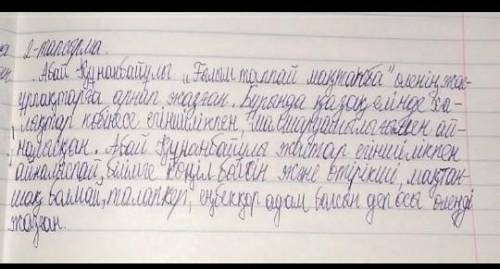 2-тапсырма.
Абай Құнанбайұлы "Ғылым таппай мақтанба" өлеңін жас
ұрпақтарға арнап жазған. Бұрында қазақ елінде ха-
лықтар көбінесе егіншілікпен, мал шаруашылығымен ай-
налысқан. Абай Құнанбайұлы жастар егіншілікпен
айналыспай, білімге көңіл бөлсін және өтірікші, мақтан-
шақ болмай, талапкер, еңбекқор адам болсын деп осы өлеңді
жазған.